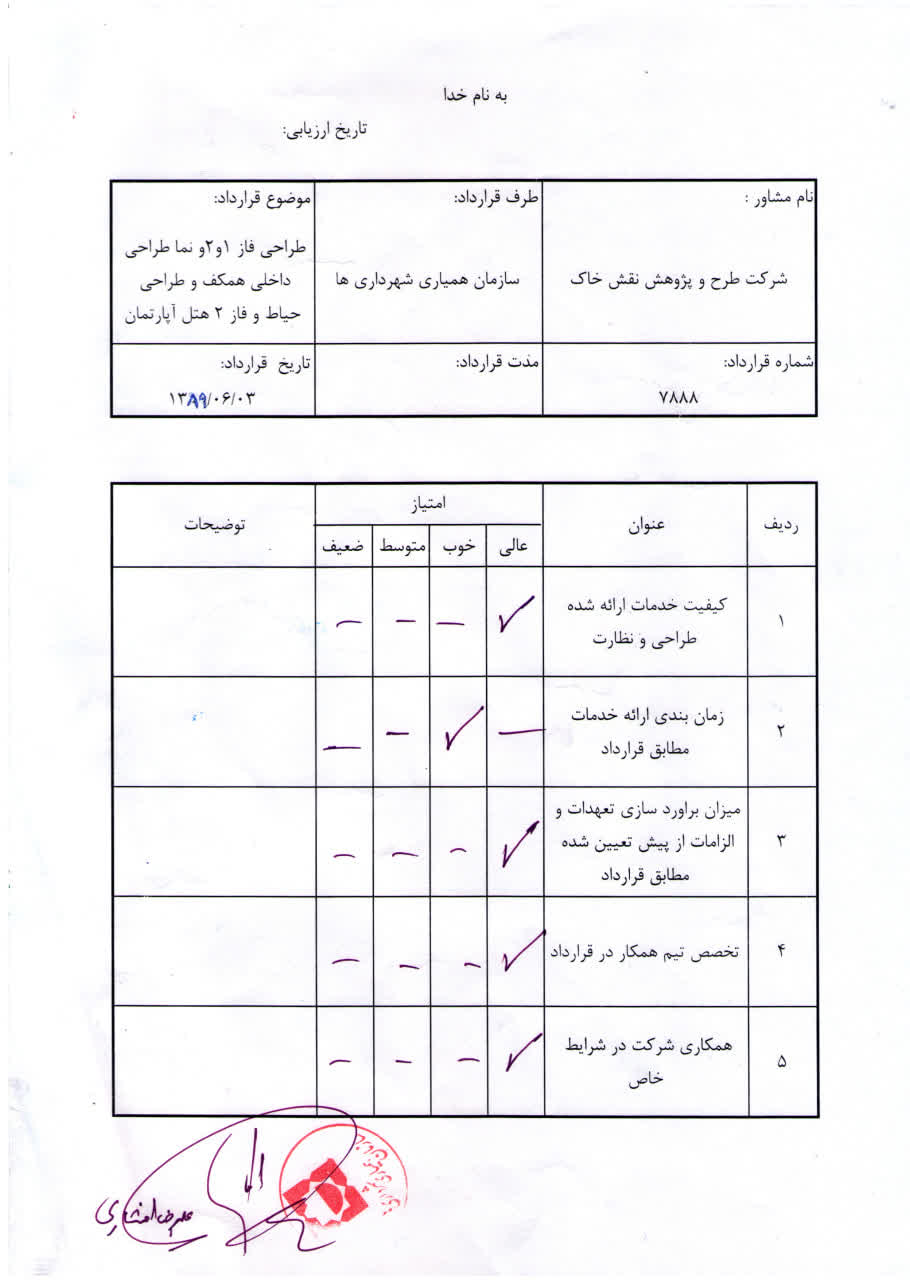 به نام خدا
تاریخ ارزیابی:
نام مشاور :
شرکت طرح و پژوهش نقش خاک
طرف قرارداد:
سازمان همیاری شهرداری ها
موضوع قرارداد:
طراحی فاز ۱و۲و نما طراحی
داخلی همکف و طراحی
حیاط و فاز ۲ هتل آپارتمان
شماره قرارداد:
۷۸۸۸
مدت قرارداد:
تاریخ قرارداد:
۱۳۸۹/۰۶/۰۳
ردیف
عنوان
امتیاز
توضیحات
عالی
خوب
متوسط
ضعیف
۱
کیفیت خدمات ارائه شده
طراحی و نظارت
۲
زمان بندی ارائه خدمات
مطابق قرارداد
۳
میزان براورد سازی تعهدات و
الزامات از پیش تعیین شده
مطابق قرارداد
۴
تخصص تیم همکار در قرارداد
۵
همکاری شرکت در شرایط
خاص